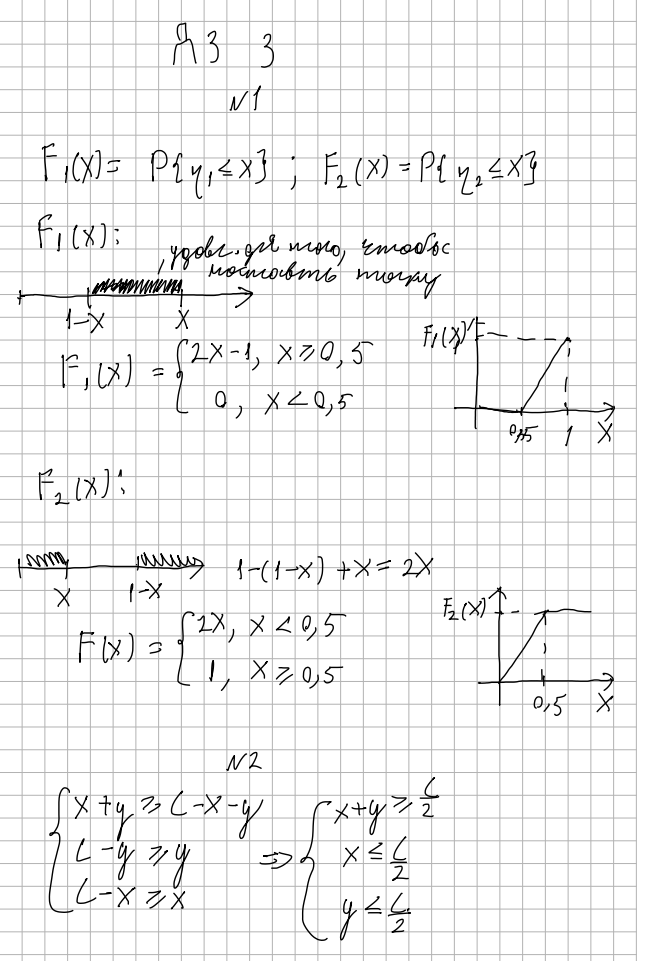 ДЗ 3
N1
F₁(x) = P{η₁ ≤ x} ; F₂(x) = P{η₂ ≤ x}
F₁(x):
, удовл. для того, чтобы
поставить точку
1-x x
F₁(x) = { 2x-1, x ≥ 0,5
0, x < 0,5
F₁(x) 1
0,5 1 x
F₂(x):
x 1-x
1-(1-x)+x = 2x
F(x) = { 2x, x < 0,5
1, x ≥ 0,5
F₂(x)
0,5 x
N2
{ x+y ≥ L-x-y
L-y ≥ y
L-x ≥ x
=> { x+y ≥ L/2
x ≤ L/2
y ≤ L/2